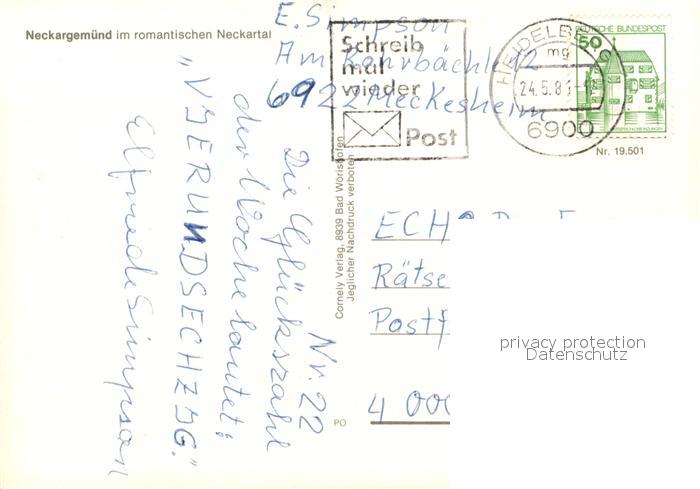 Neckargemünd im romantischen Neckartal
E. Simpson
Am 12
6922 Meckesheim
Schreib
mal
wieder
Post
HEIDELBERG
mg
24.5.8
6900
DEUTSCHE BUNDESPOST
50
Nr. 19.501
Nr. 22
Die Glückszahl
der Woche lautet:
„VIERUNDSECHZIG."
Elfriede Simpson
Cornely Verlag, 8939 Bad Wörishofen
Jeglicher Nachdruck verboten
PO
ECHO
Rätse
Postf
4000
privacy protection
Datenschutz